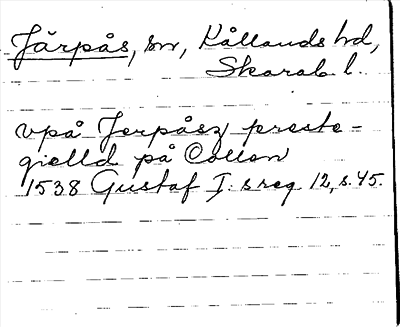 Järpås, sn, Kållands hd,
Skarab. l.
vpå Jerpåsz preste-
gielld på Collan
1538 Gustaf I:s reg 12, s. 45.